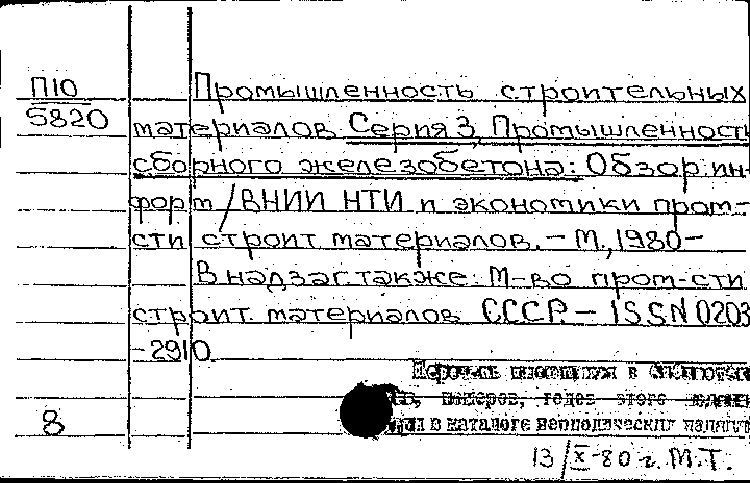 П10
5820
Промышленность строительных
материалов Серия 3 Промышленность
сборного железобетона: Обзор. ин-
форм / ВНИИ НТИ и экономики пром-
сти строит материалов. - М., 1980-
В надзаг. также: М-во пром-сти
строит. материалов СССР. - ISSN 0203
-2910
Перечень имеющихся в библиотеке
номеров, годов этого издания
в каталоге периодических изданий
8
13/X-80 г. М.Т.